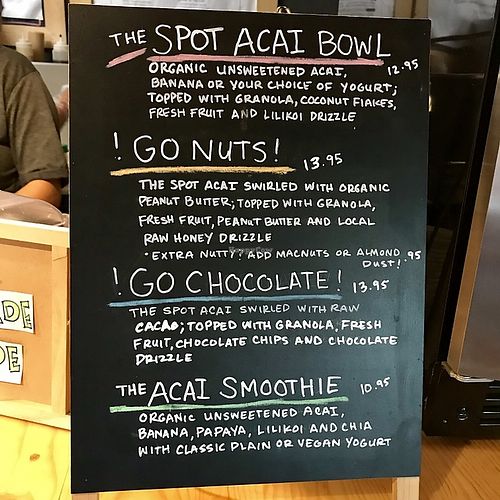 THE SPOT ACAI BOWL
ORGANIC UNSWEETENED ACAI, 12.95
BANANA OR YOUR CHOICE OF YOGURT;
TOPPED WITH GRANOLA, COCONUT FLAKES,
FRESH FRUIT AND LILIKOI DRIZZLE
! GO NUTS! 13.95
THE SPOT ACAI SWIRLED WITH ORGANIC
PEANUT BUTTER; TOPPED WITH GRANOLA,
FRESH FRUIT, PEANUT BUTTER AND LOCAL
RAW HONEY DRIZZLE
• EXTRA NUTTY? ADD MACNUTS OR ALMOND .95
DUST!
! GO CHOCOLATE! 13.95
THE SPOT ACAI SWIRLED WITH RAW
CACAO; TOPPED WITH GRANOLA, FRESH
FRUIT, CHOCOLATE CHIPS AND CHOCOLATE
DRIZZLE
THE ACAI SMOOTHIE 10.95
ORGANIC UNSWEETENED ACAI,
BANANA, PAPAYA, LILIKOI AND CHIA
WITH CLASSIC PLAIN OR VEGAN YOGURT